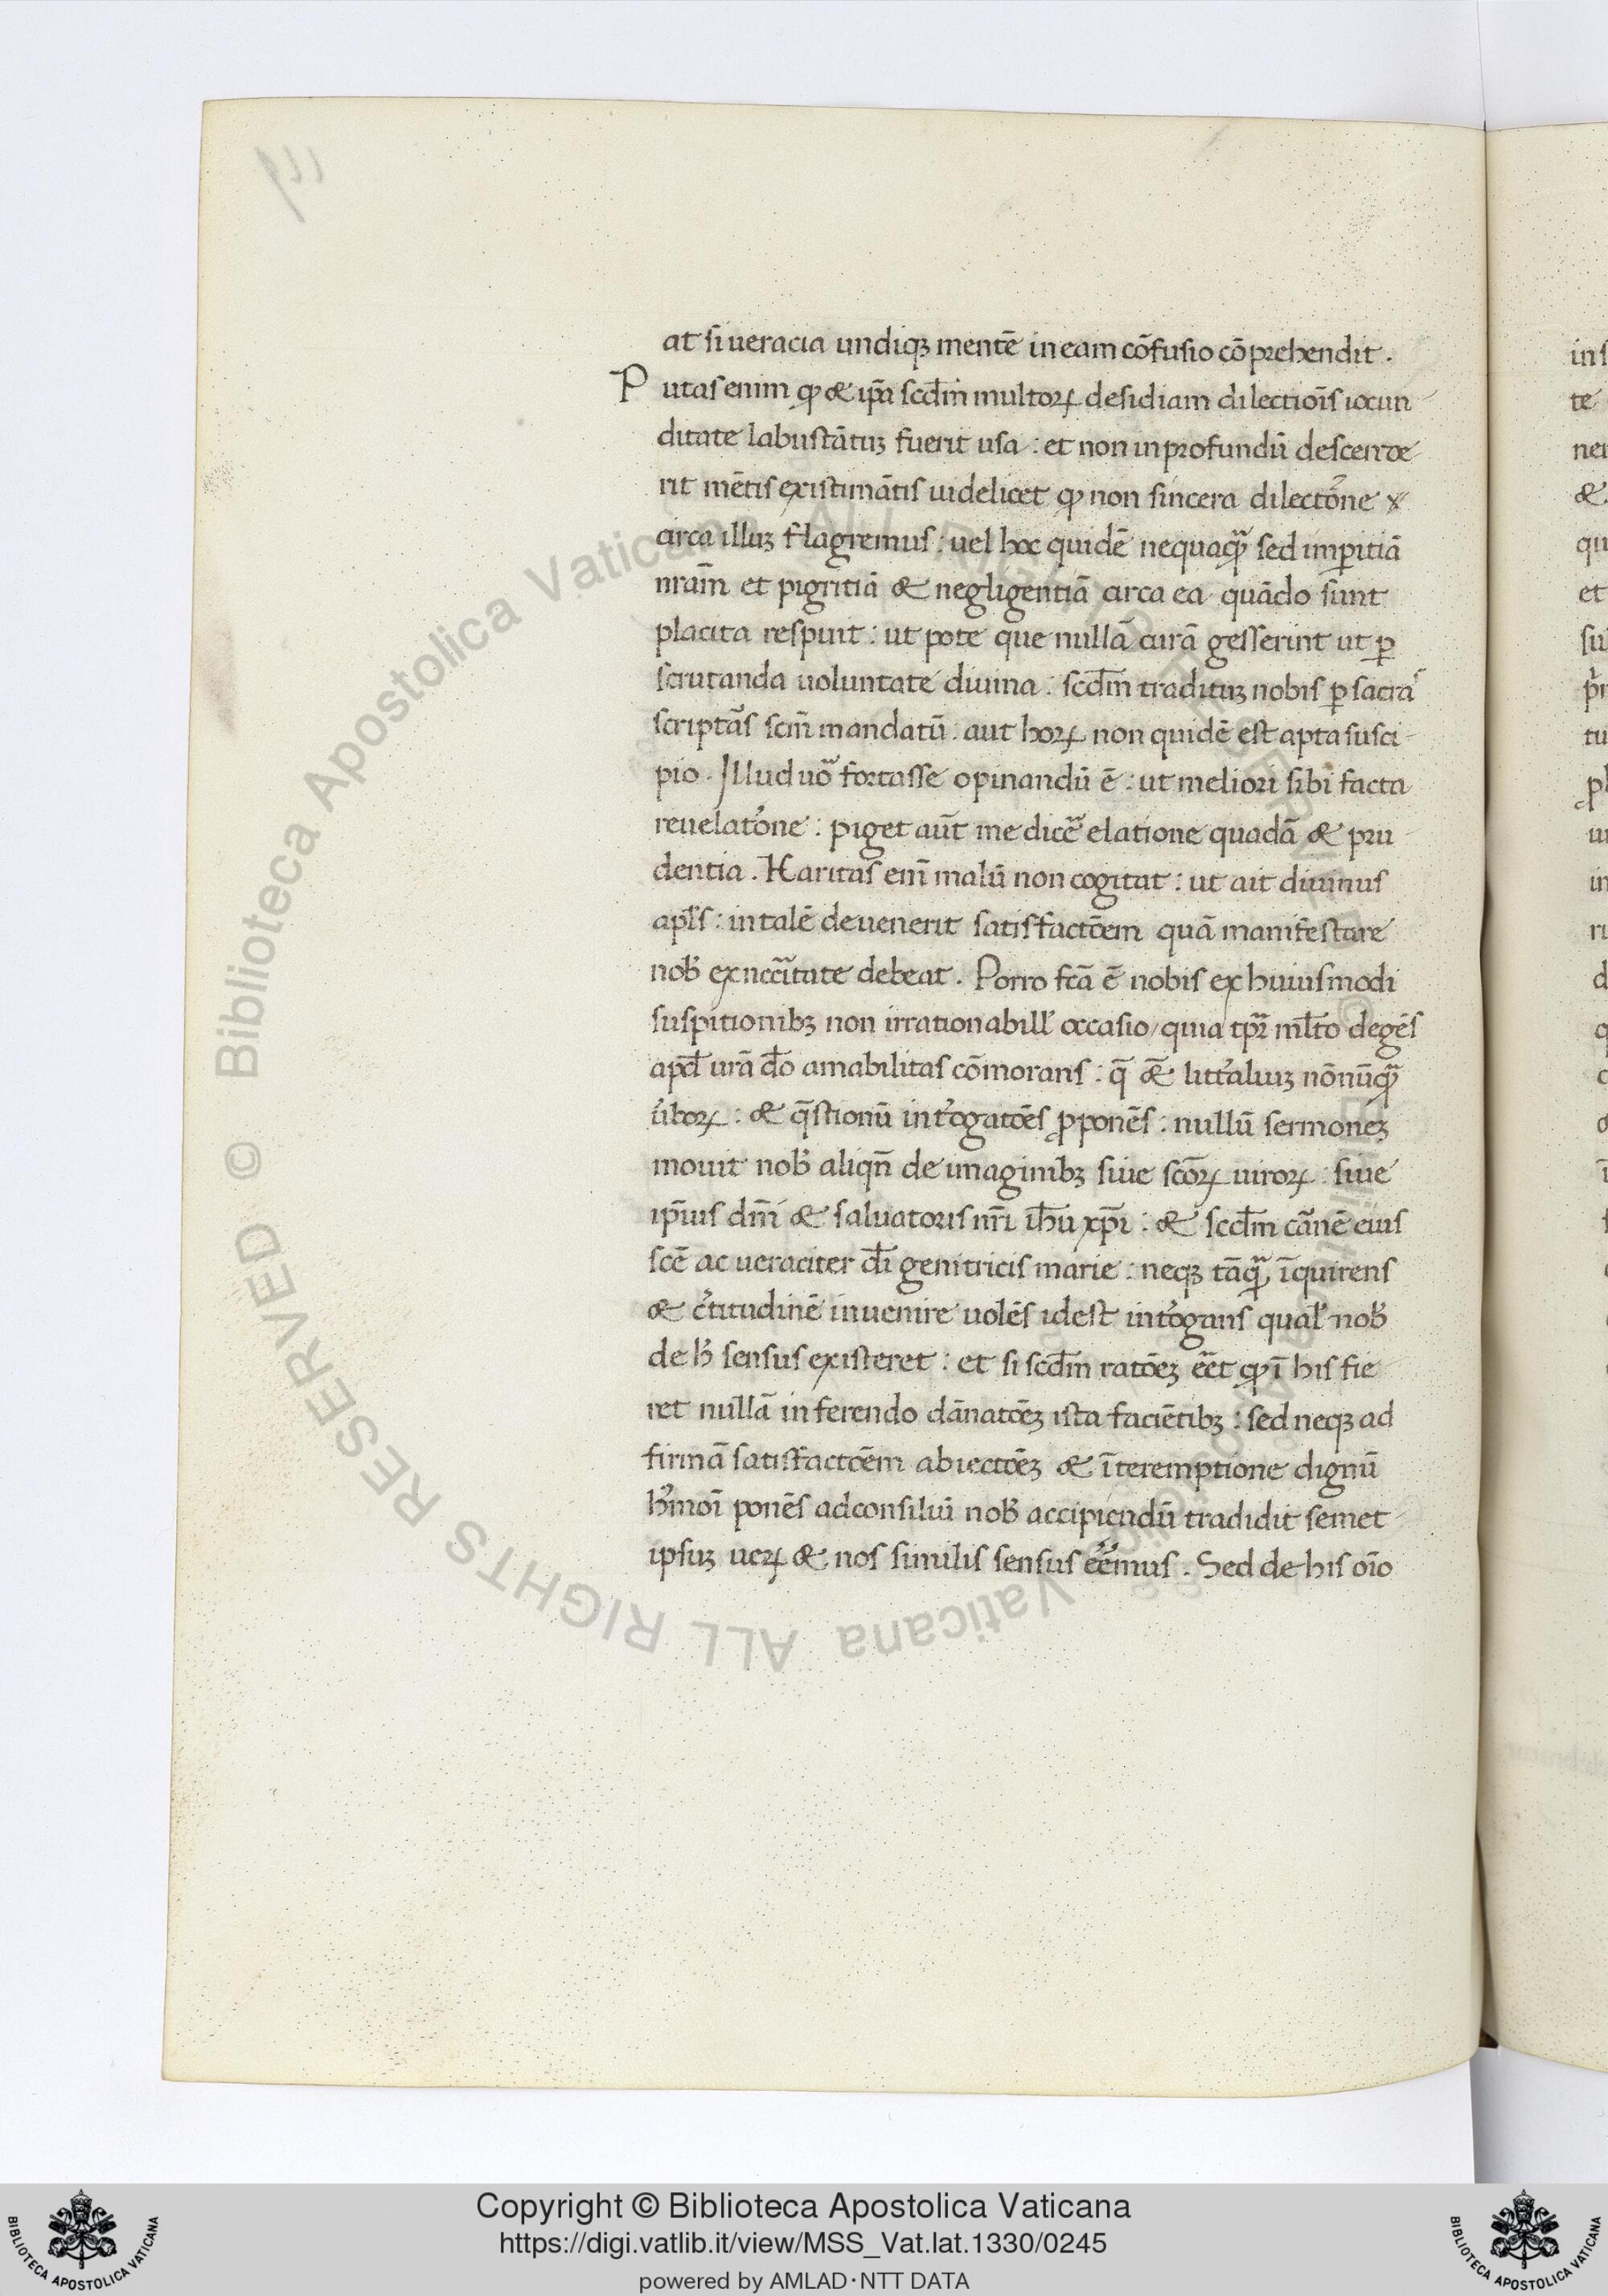 at si ueracia undiqꝫ mentē in eam cōfusio cōprehendit .
Putas enim ꝙ & ip̄a scd̄m multoꝝ desidiam dilectiōīs iocun
ditate labustātuꝫ fuerit usa : et non in profundū
rit mētis existimātis uidelicet ꝙ non sincera dilectōne
circa illuꝫ flagremus : uel hoc quidē nequaꝙ̄ sed imꝑitiā
nram̄ et pigritiā & negligentiā circa ea quādo sunt
placita respuit : ut pote que nullā curā gesserint ut ꝑ
scrutanda uoluntate diuina : scd̄m tradituꝫ nobis ꝑ sacra
scriptās scm̄ mandatū . aut hoꝝ non quidē est apta susci
pio . Illud uō fortasse opinandū ē : ut meliori sibi facta
reuelatōne : piget aūt me dicē elatione quadā & pru
dentia . Karitas enī malū non cogitat : ut ait diuinus
apl̄s : in talē deuenerit satisfactōem quā manifestare
nob̄ ex nccītate debeat . Porro fcā ē nobis ex huiusmodi
suspitionibꝫ non irrationabill' occasio / quia tpr̄ ml̄to degēs
apd̄ urā dō amabilitas cōmorans : q̄ & litt'aluiꝫ nōnūꝙ̄
u'boꝝ : & q̄stionū int'ogatōēs ꝓponēs : nullū sermoneꝫ
mouit nob̄ aliqn̄ de imaginibꝫ siue scōꝝ uiroꝝ : siue
ip̄ius dn̄i & saluatoris nr̄i ih̄u xp̄i : & scd̄m cānē eius
scē ac ueraciter dī genitricis marie : neqꝫ tāꝙ̄ īquirens
& c'titudinē inuenire uolēs idest int'ogans qual' nob̄
de h' sensus existeret : et si scd̄m ratōeꝫ eēt ꝙ ī his fie
ret nullā inferendo dānatōeꝫ ista faciētibꝫ : sed neqꝫ ad
firmā satisfactōem abiectōeꝫ & īteremptione dignū
h'moī ponēs ad consiliū nob̄ accipiendū tradidit semet
ipsuꝫ ueꝝ & nos similis sensus eēmus . Sed de his oīo
Copyright © Biblioteca Apostolica Vaticana
https://digi.vatlib.it/view/MSS_Vat.lat.1330/0245
powered by AMLAD·NTT DATA